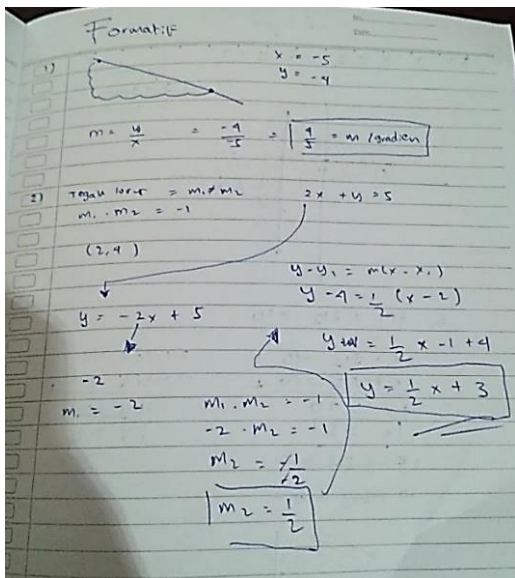 Formatif
1)
x = -5
y = -4
m = y/x = -4/-5 = 4/5 = m /gradien
2) Tegak lurus = m₁ ≠ m₂
m₁ . m₂ = -1
2x + y = 5
(2,4)
y = -2x + 5
-2
m₁ = -2
m₁ . m₂ = -1
-2 . m₂ = -1
m₂ = -1/-2
m₂ = 1/2
y - y₁ = m(x - x₁)
y - 4 = 1/2 (x - 2)
y = 1/2 x - 1 + 4
y = 1/2 x + 3